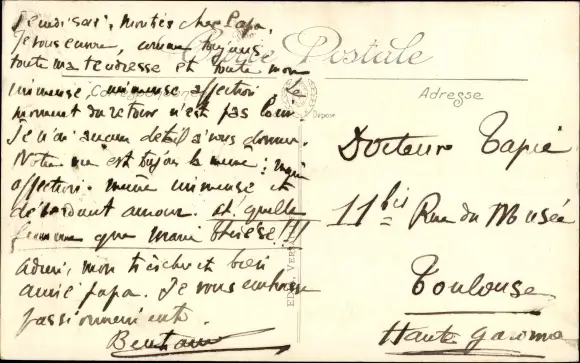 Jeudi soir, montés chez Papa.
Je vous envoie, comme toujours
toute ma tendresse et toute mon
immense, immense affection. Le
moment du retour n'est pas loin.
Je n'ai aucun détail à vous donner.
Notre vie est toujours la même : même
affection. même immense et
débordant amour. et quelle
femme que Marie Thérèse!!!
Adieu, mon très cher et bien
aimé papa. Je vous embrasse
passionnément.
Carte Postale
Correspondance
Adresse
Docteur Tapié
11 bis Rue du Musée
Toulouse
Haute Garonne